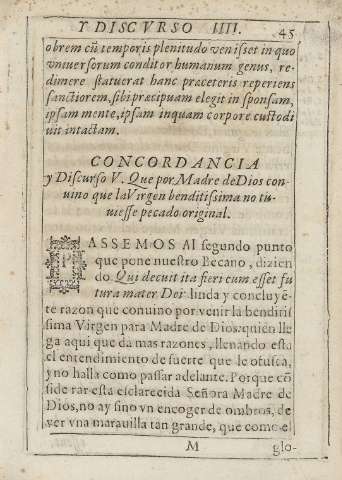 Y DISCVRSO IIII. 45
obrem cũ temporis plenitudo venisset in quo
vniuersorum conditor humanum genus, re-
dimere statuerat hanc præceteris reperiens
sanctiorem, sibi præcipuam elegit in sponsam,
ipsam mente, ipsam inquam corpore custodi
uit intactam.
CONCORDANCIA
y Discurso V. Que por Madre de Dios con-
uino que la Virgen benditissima no tu-
uiesse pecado original.
PASSEMOS Al segundo punto
que pone nuestro Becano, dizien
do. Qui decuit ita fieri cum esset fu
tura mater Dei linda y concluyẽ-
te razon que conuino por venir la benditis
sima Virgen para Madre de Dios: quien lle
ga aqui que da mas razones, llenando esta
el entendimiento de suerte que le ofusca,
y no halla como passar adelante. Porque cõ
side rar esta esclarecida Señora Madre de
Dios, no ay sino vn encoger de ombros, de
ver vna marauilla tan grande, que como e
M glo-